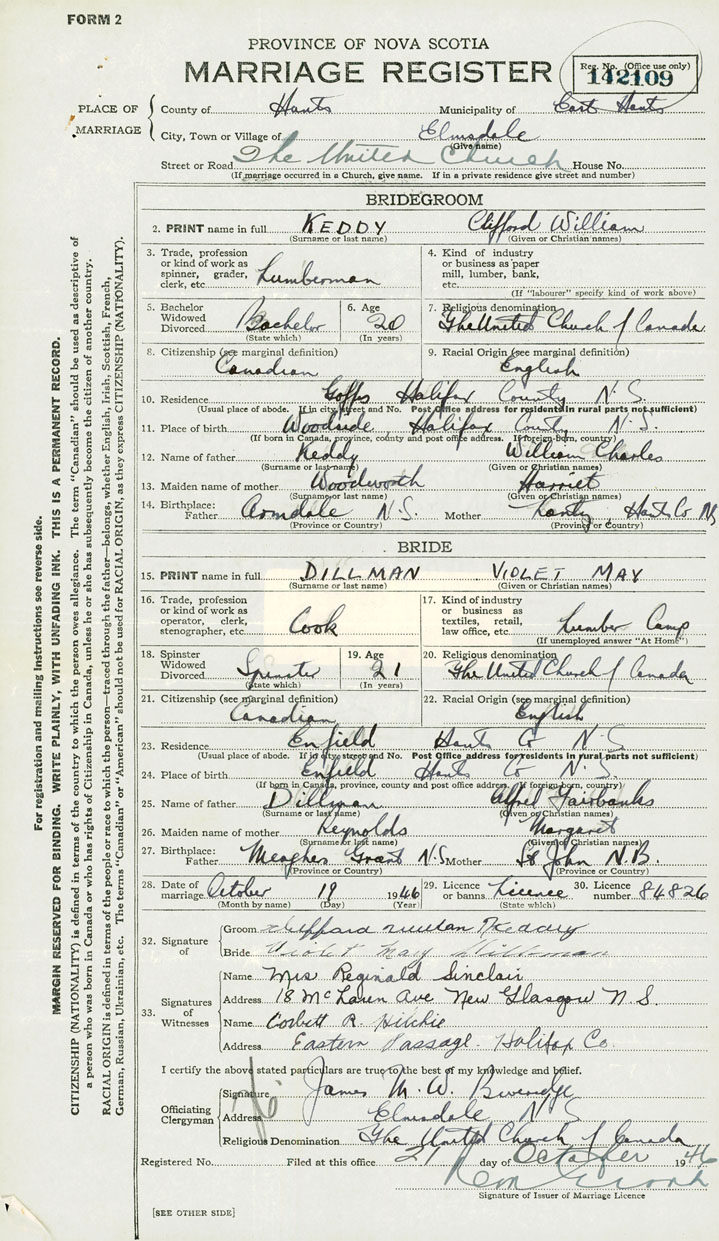 FORM 2
PROVINCE OF NOVA SCOTIA
MARRIAGE REGISTER
Reg. No. (Office use only)
142109
PLACE OF MARRIAGE
County of Hants Municipality of East Hants
City, Town or Village of Elmsdale
(Give name)
Street or Road The United Church House No.
(If marriage occurred in a Church, give name. If in a private residence give street and number)
BRIDEGROOM
2. PRINT name in full KEDDY Clifford William
(Surname or last name) (Given or Christian names)
3. Trade, profession or kind of work as spinner, grader, clerk, etc. Lumberman
4. Kind of industry or business as paper mill, lumber, bank, etc.
(If "labourer" specify kind of work above)
5. Bachelor Widowed Divorced Bachelor (State which)
6. Age 20 (In years)
7. Religious denomination The United Church of Canada
8. Citizenship (see marginal definition) Canadian
9. Racial Origin (see marginal definition) English
10. Residence Goffs Halifax County N.S.
(Usual place of abode. If in city, street and No. Post Office address for residents in rural parts not sufficient)
11. Place of birth Woodside, Halifax County N.S.
(If born in Canada, province, county and post office address. If foreign-born, country)
12. Name of father Keddy William Charles
(Surname or last name) (Given or Christian names)
13. Maiden name of mother Woodworth Harriet
(Surname or last name) (Given or Christian names)
14. Birthplace: Father Armdale N.S. Mother Lantz, Hants Co NS
(Province or Country) (Province or Country)
BRIDE
15. PRINT name in full DILLMAN VIOLET MAY
(Surname or last name) (Given or Christian names)
16. Trade, profession or kind of work as operator, clerk, stenographer, etc. Cook
17. Kind of industry or business as textiles, retail, law office, etc. Lumber Camp
(If unemployed answer "At Home")
18. Spinster Widowed Divorced Spinster (State which)
19. Age 21 (In years)
20. Religious denomination The United Church of Canada
21. Citizenship (see marginal definition) Canadian
22. Racial Origin (see marginal definition) English
23. Residence Enfield Hants Co N.S
(Usual place of abode. If in city, street and No. Post Office address for residents in rural parts not sufficient)
24. Place of birth Enfield Hants Co N.S.
(If born in Canada, province, county and post office address. If foreign-born, country)
25. Name of father Dillman Alfred Fairbanks
(Surname or last name) (Given or Christian names)
26. Maiden name of mother Reynolds Margaret
(Surname or last name) (Given or Christian names)
27. Birthplace: Father Meaghers Grant N.S Mother St John N.B.
(Province or Country) (Province or Country)
28. Date of marriage October 19 1946
(Month by name) (Day) (Year)
29. Licence or banns Licence (State which)
30. Licence number 84826
32. Signature of
Groom Keddy
Bride Violet May Dillman
33. Signatures of Witnesses
Name Mrs Reginald Sinclair
Address 18 McLaren Ave New Glasgow N.S.
Name Corbett R. Hitchie
Address Eastern Passage. Halifax Co.
I certify the above stated particulars are true to the best of my knowledge and belief.
Officiating Clergyman
Signature James M. W.
Address Elmsdale N S
Religious Denomination The United Church of Canada
Registered No. Filed at this office 21 day of October 1946
Signature of Issuer of Marriage Licence
[SEE OTHER SIDE]
For registration and mailing instructions see reverse side.
MARGIN RESERVED FOR BINDING. WRITE PLAINLY, WITH UNFADING INK. THIS IS A PERMANENT RECORD.
CITIZENSHIP (NATIONALITY) is defined in terms of the country to which the person owes allegiance. The term "Canadian" should be used as descriptive of
a person who was born in Canada or who has rights of Citizenship in Canada, unless he or she has subsequently become the citizen of another country.
RACIAL ORIGIN is defined in terms of the people or race to which the person—traced through the father—belongs, whether English, Irish, Scottish, French,
German, Russian, Ukrainian, etc. The terms "Canadian" or "American" should not be used for RACIAL ORIGIN, as they express CITIZENSHIP (NATIONALITY).